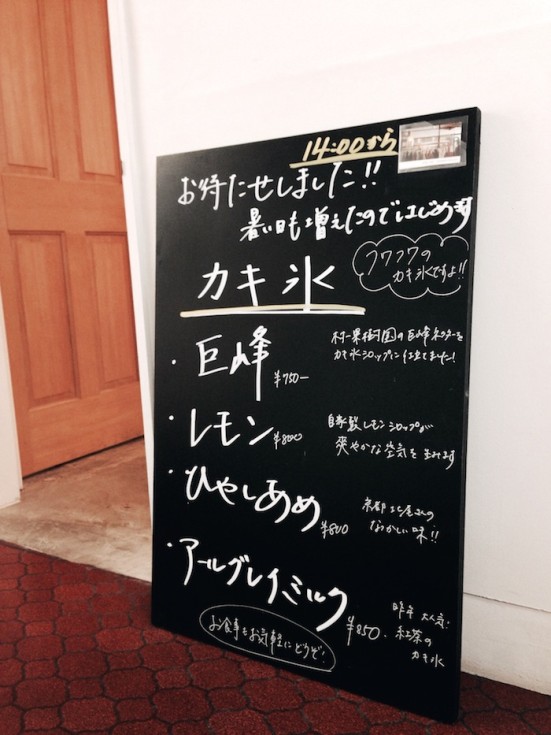 14:00から
お待たせしました!!
暑い日も増えたのではじめます
フワフワの
カキ氷ですよ!!
カキ氷
・巨峰 ¥750-
村一果樹園の巨峰ネクターを
カキ氷シロップに仕立てました!
・レモン ¥800
自家製レモンシロップが
爽やかな空気を生みます
・ひやしあめ ¥800
京都 屋さんの
なつかしい味!!
・アールグレイミルク ¥850.
昨年大人気・
紅茶の
カキ氷
お食事もお気軽にどうぞ!